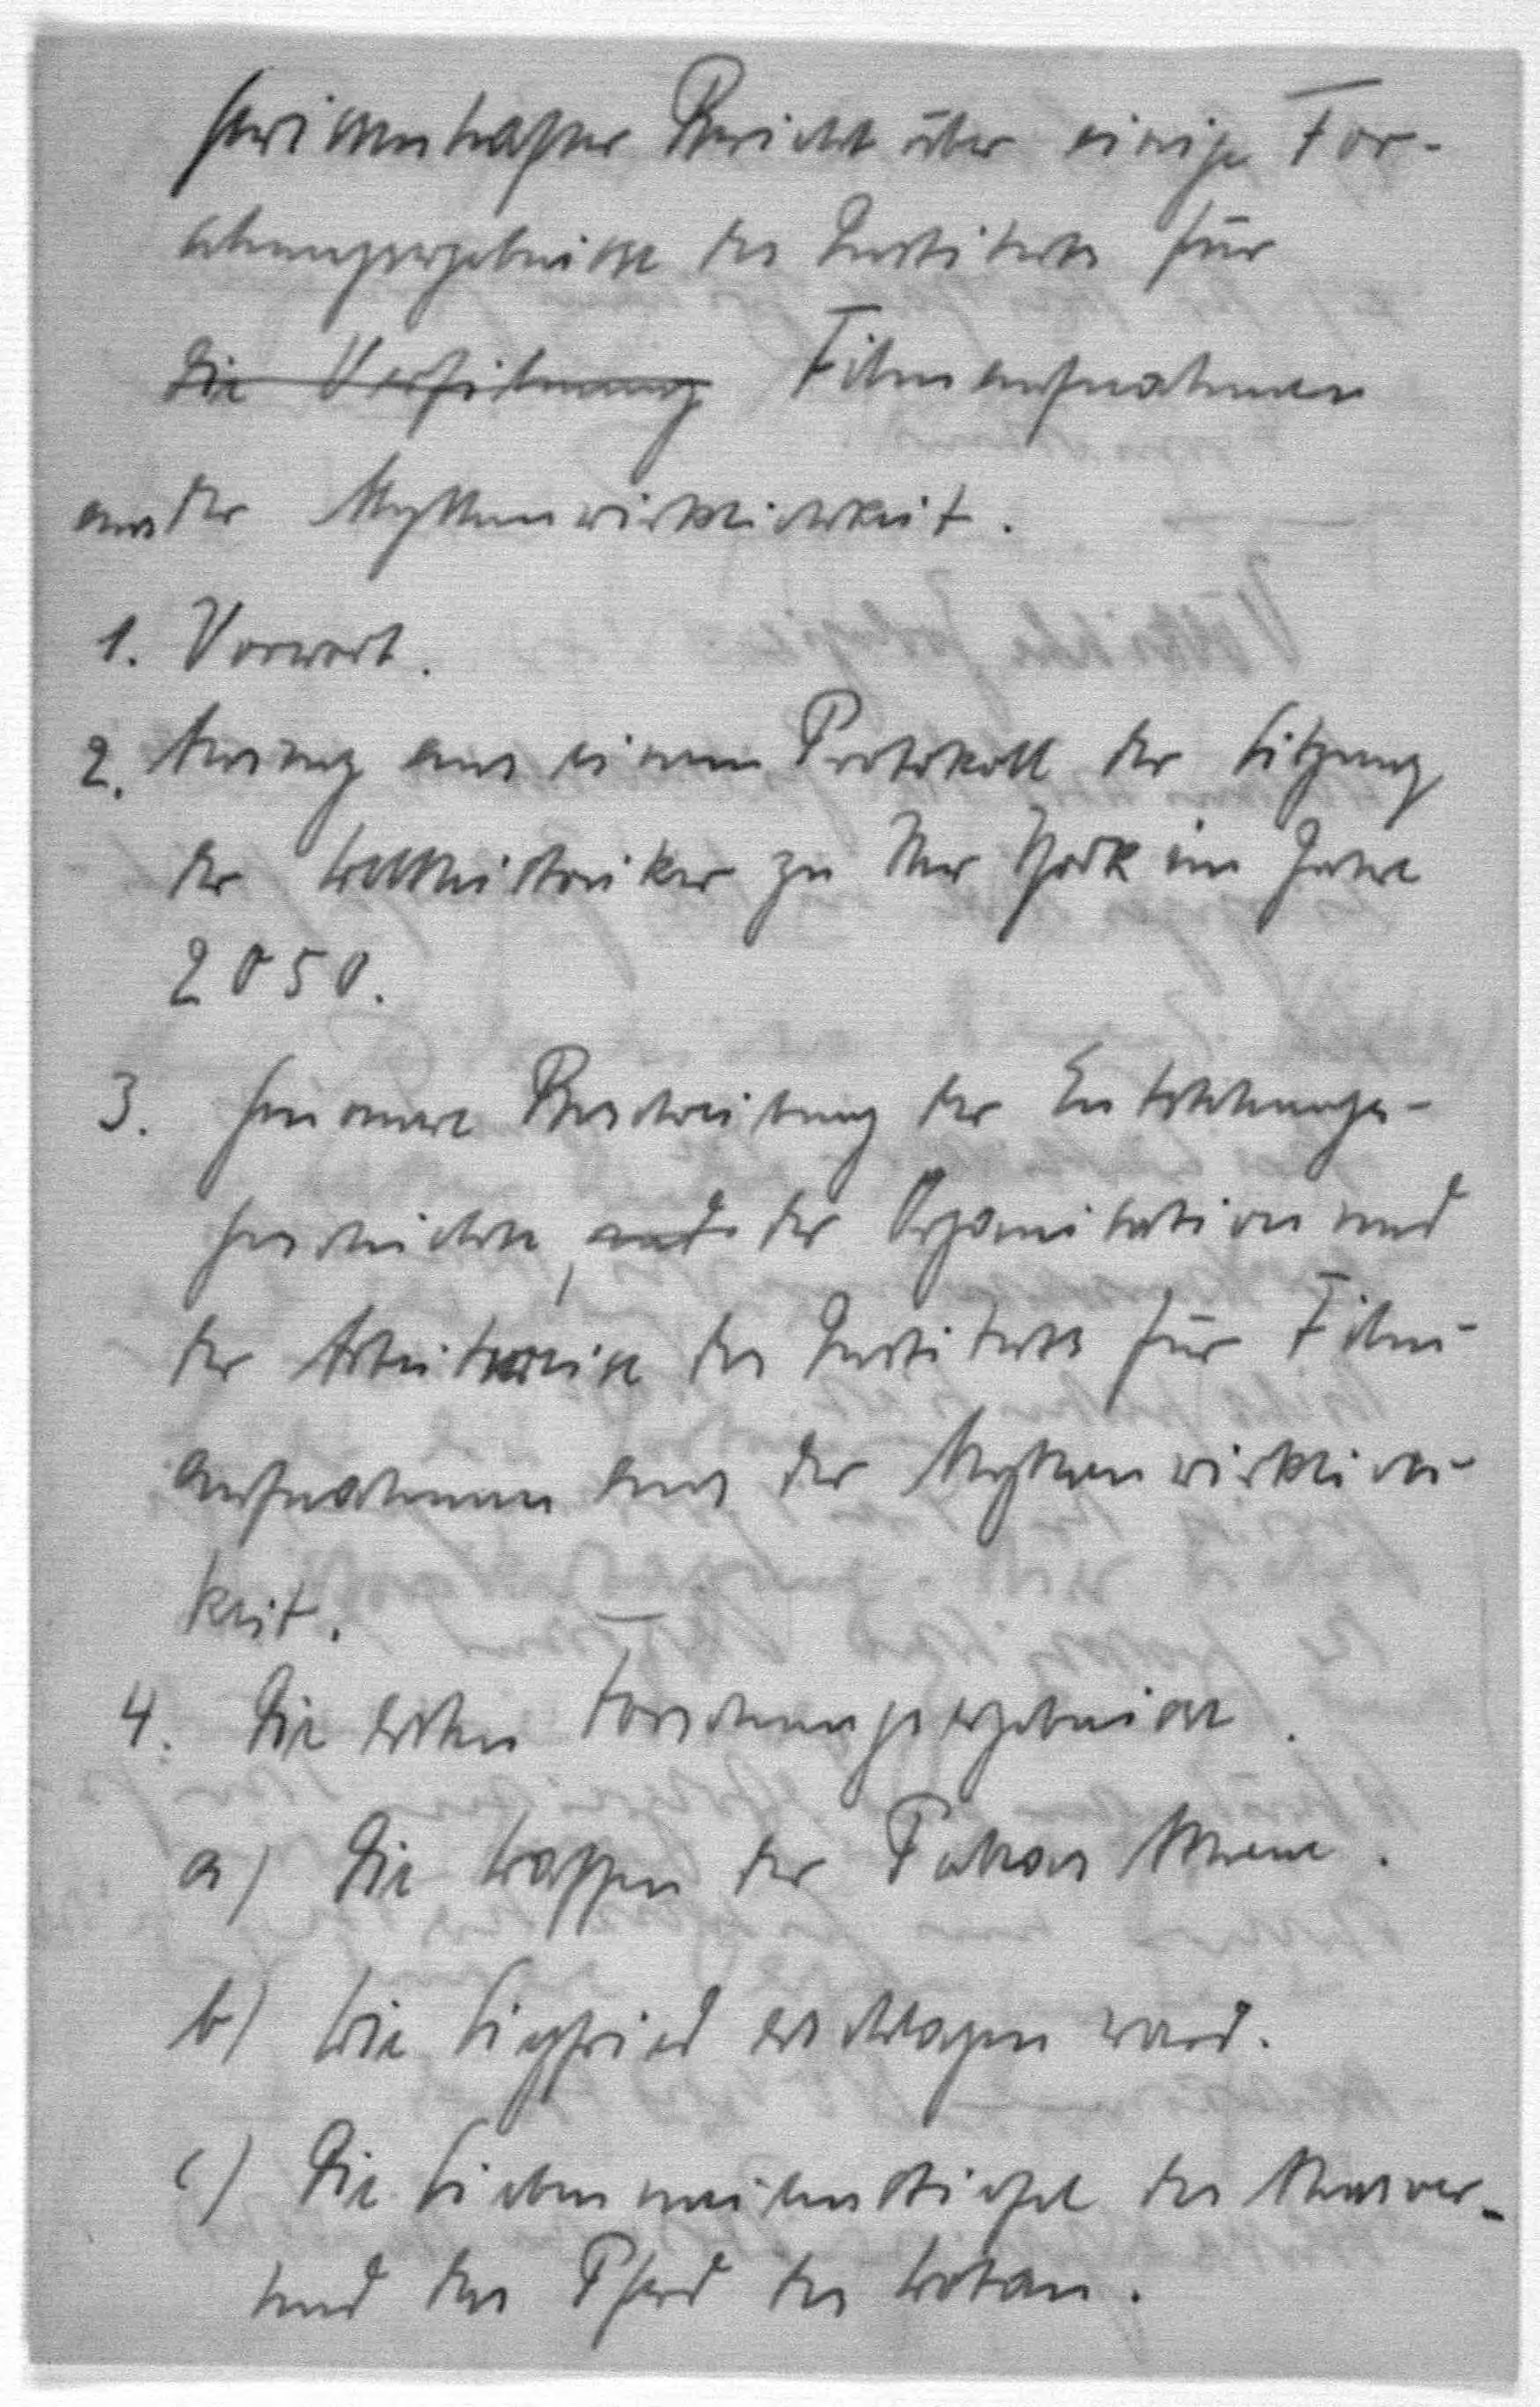 Gewissenhafter Bericht über einige For-
schungsergebnisse des Instituts für
die Verfilmung Filmaufnahmen
aus der Mythenwirklichkeit.
1. Vorwort.
2. Auszug aus einem Protokoll der Sitzung
der Welthistoriker zu New York im Jahre
2050.
3. Genauere Beschreibung der Entstehungs-
geschichte, und der Organisation und
der Arbeitsweise des Instituts für Film-
aufnahmen aus der Mythenwirklich-
keit.
4. Die ersten Forschungsergebnisse.
a) Die Waffen der Pallas Athene.
b) Wie Siegfried erschlagen ward.
c) Die Siebenmeilenstiefel des
und das Pferd des Wotan.